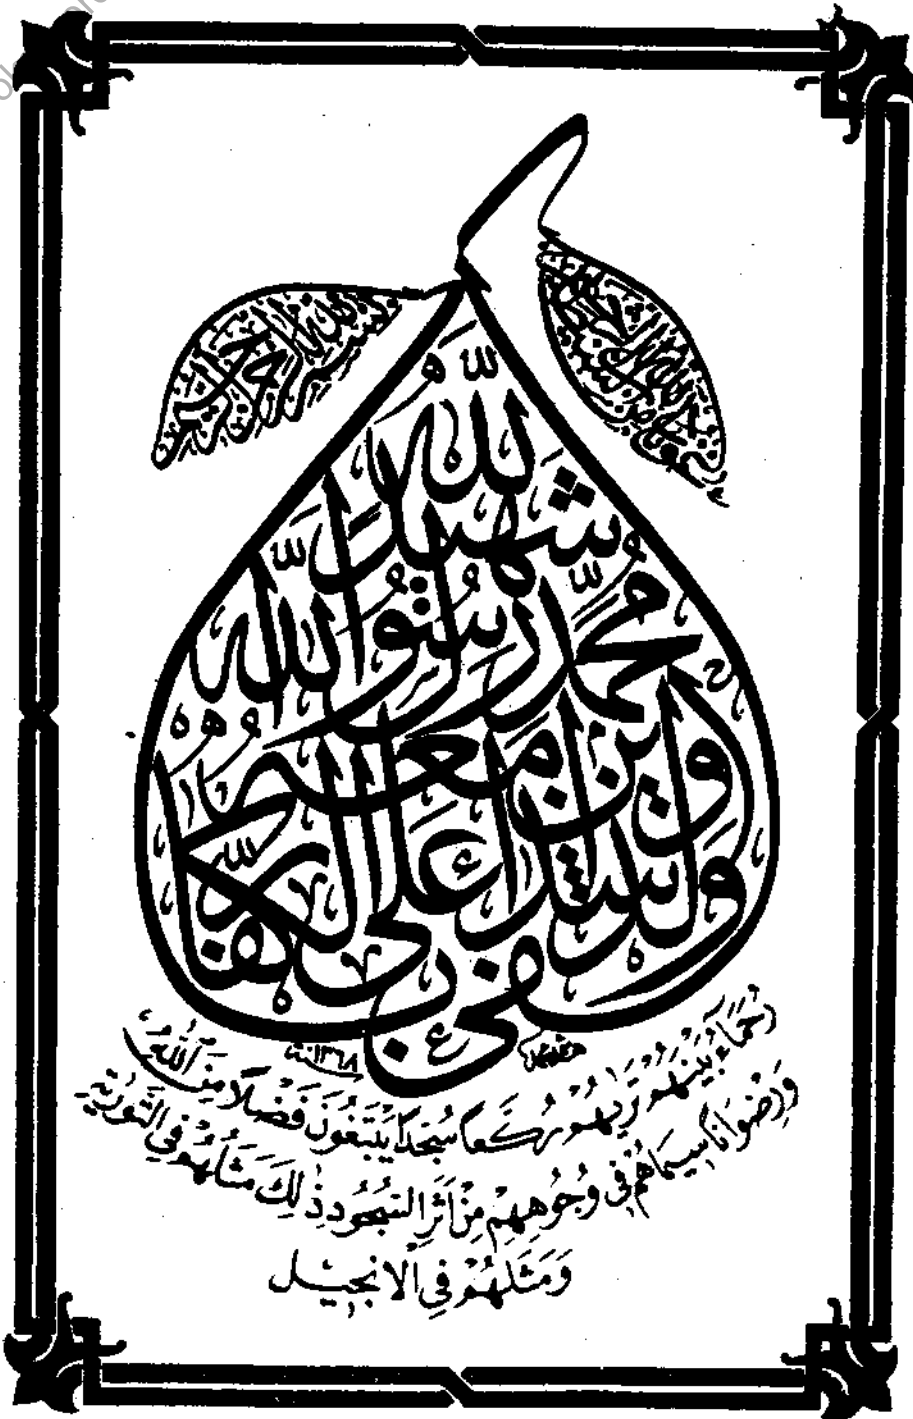 بسم الله الرحمن الرحيم
وكفى بالله شهيدا
محمد رسول الله
والذين معه
اشداء على الكفار
١٣٦٨ سنة
رُحَمَاءُ بَيْنَهُمْ تَرَيهُمْ رُكَّعاً سُجَّداً يَبْتَغُونَ فَضْلاً مِنَ اللّٰهِ
وَرِضْوَاناً سِيمَاهُمْ فِي وُجُوهِهِمْ مِنْ اَثَرِ السُّجُودِ ذٰلِكَ مَثَلُهُمْ فِي التَّوْرٰيةِ
وَمَثَلُهُمْ فِي الْاِنْجِيلِ